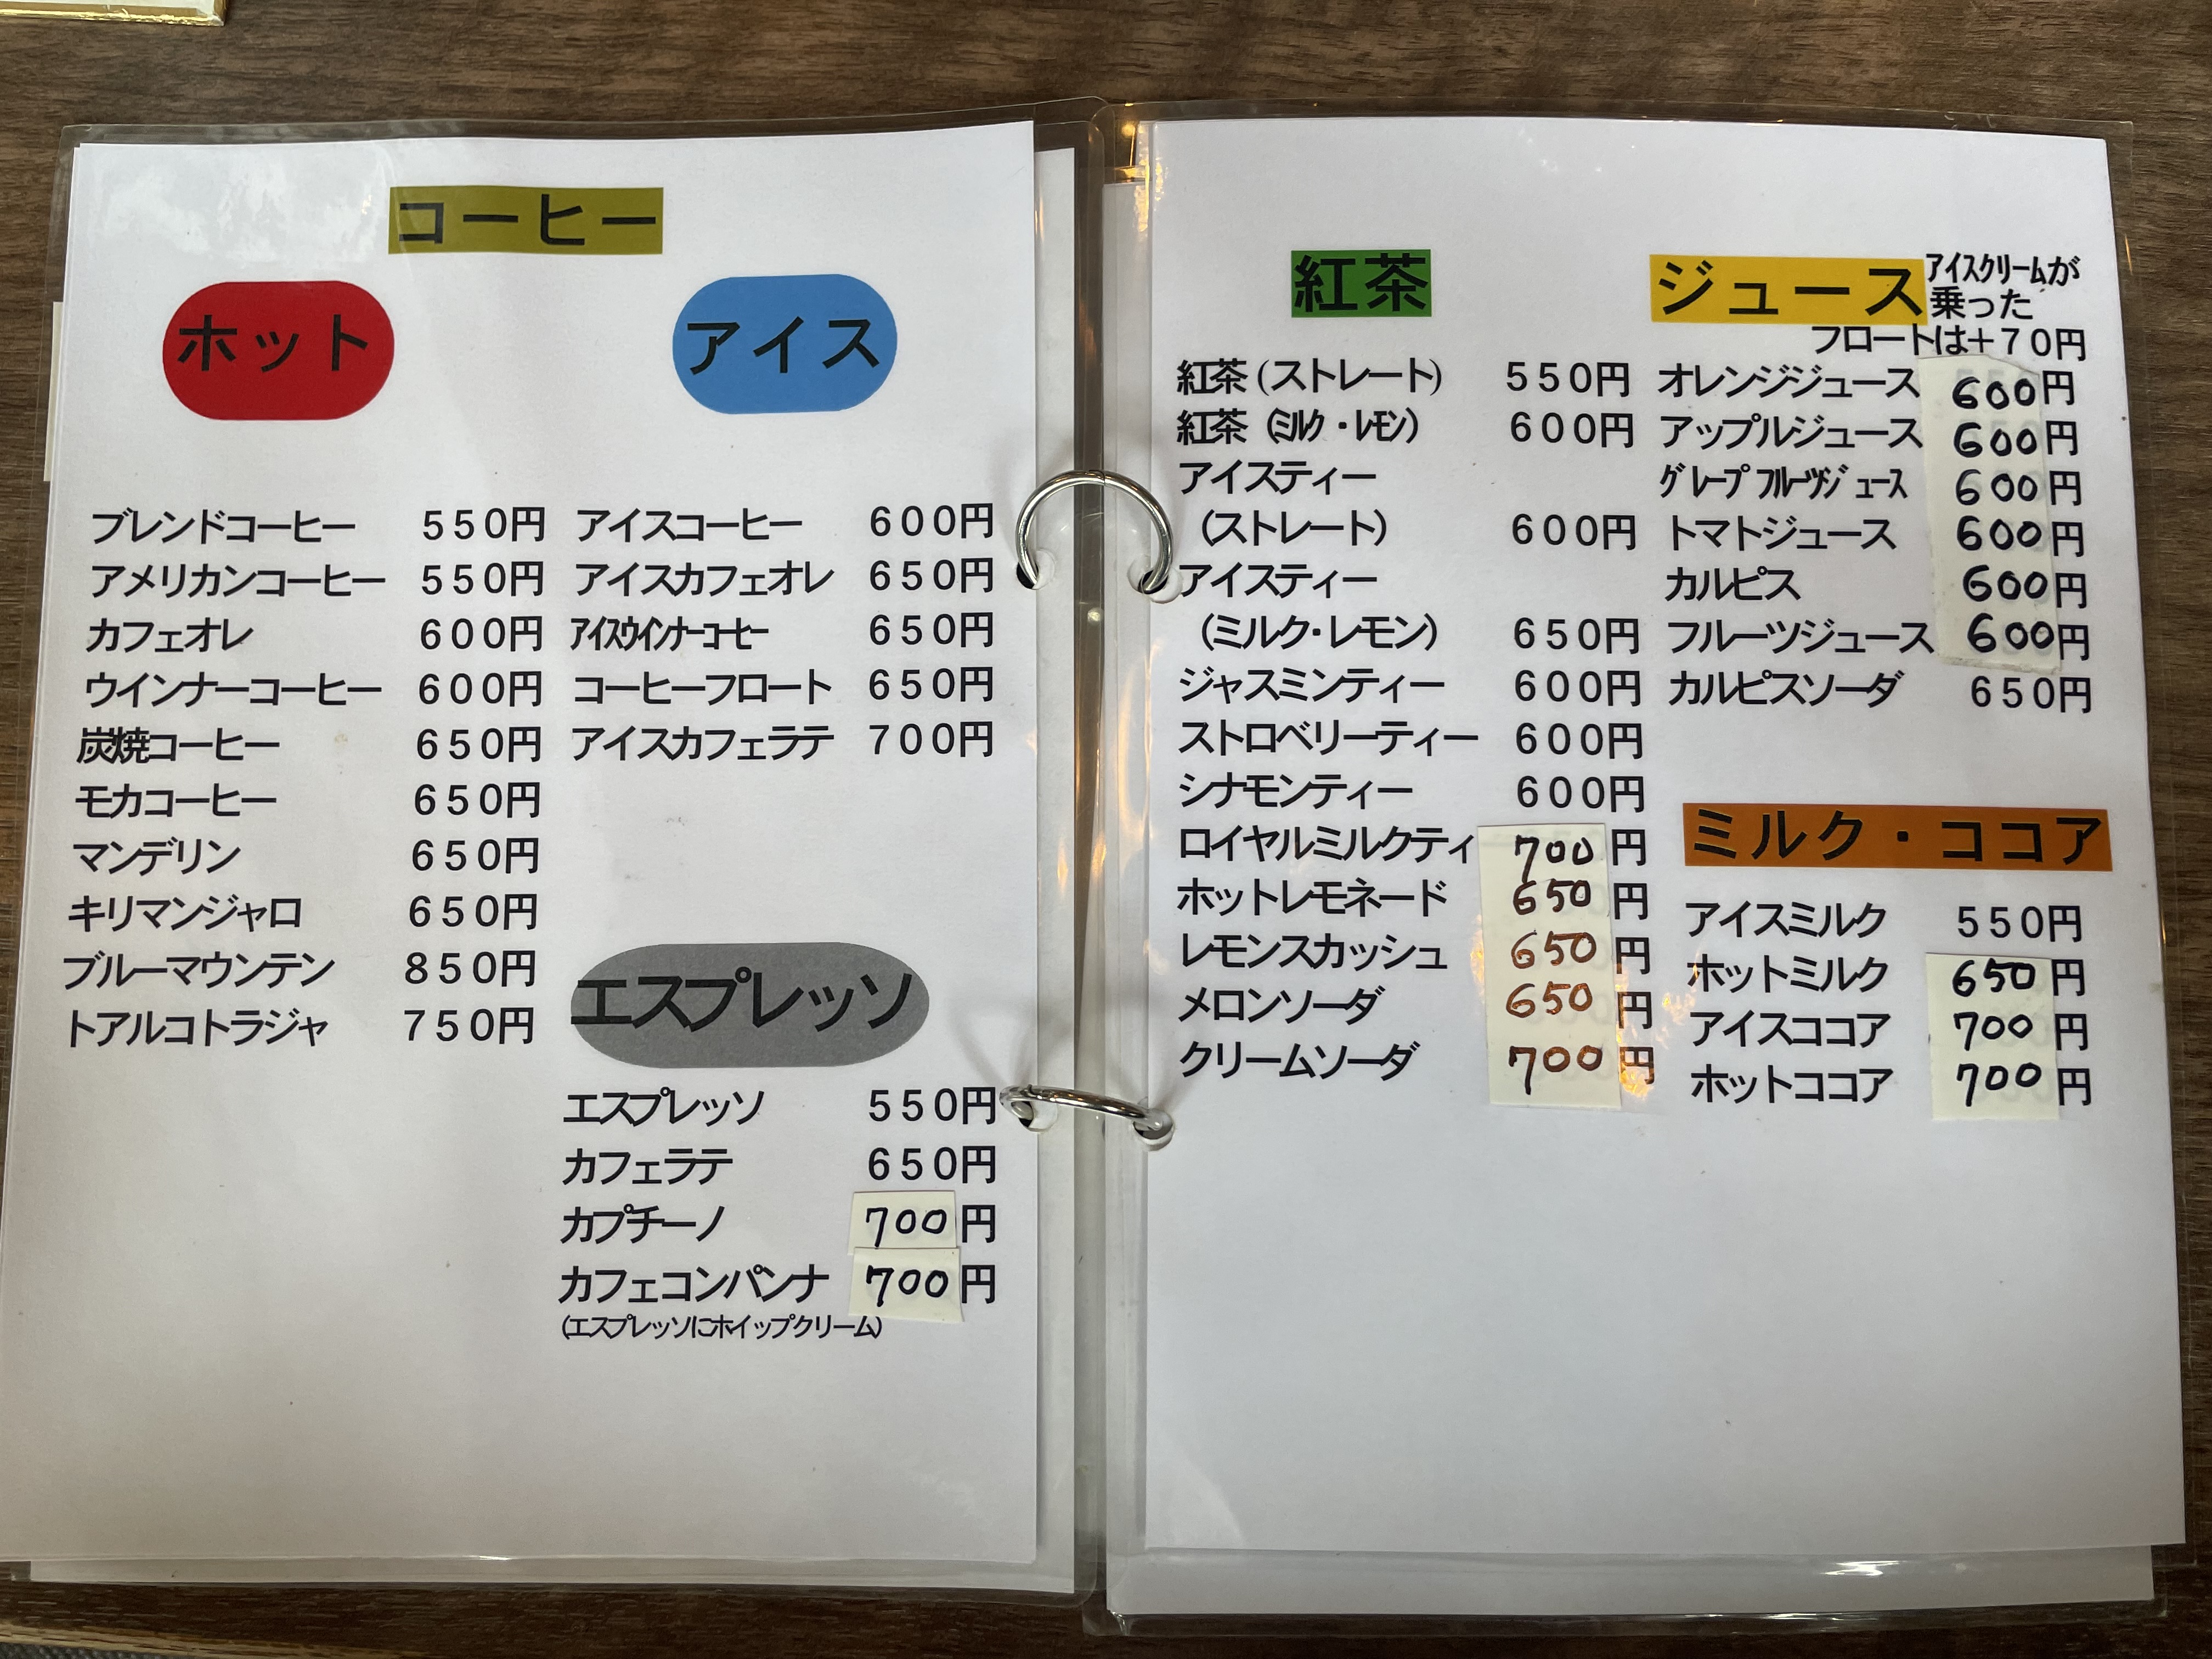 コーヒー
ホット
ブレンドコーヒー 550円
アメリカンコーヒー 550円
カフェオレ 600円
ウインナーコーヒー 600円
炭焼コーヒー 650円
モカコーヒー 650円
マンデリン 650円
キリマンジャロ 650円
ブルーマウンテン 850円
トアルコトラジャ 750円
アイス
アイスコーヒー 600円
アイスカフェオレ 650円
アイスウインナーコーヒー 650円
コーヒーフロート 650円
アイスカフェラテ 700円
エスプレッソ
エスプレッソ 550円
カフェラテ 650円
カプチーノ 700円
カフェコンパンナ 700円
(エスプレッソにホイップクリーム)
紅茶
紅茶(ストレート) 550円
紅茶(ミルク・レモン) 600円
アイスティー
(ストレート) 600円
アイスティー
(ミルク・レモン) 650円
ジャスミンティー 600円
ストロベリーティー 600円
シナモンティー 600円
ロイヤルミルクティ 700円
ホットレモネード 650円
レモンスカッシュ 650円
メロンソーダ 650円
クリームソーダ 700円
ジュース
アイスクリームが
乗った
フロートは+70円
オレンジジュース 600円
アップルジュース 600円
グレープフルーツジュース 600円
トマトジュース 600円
カルピス 600円
フルーツジュース 600円
カルピスソーダ 650円
ミルク・ココア
アイスミルク 550円
ホットミルク 650円
アイスココア 700円
ホットココア 700円